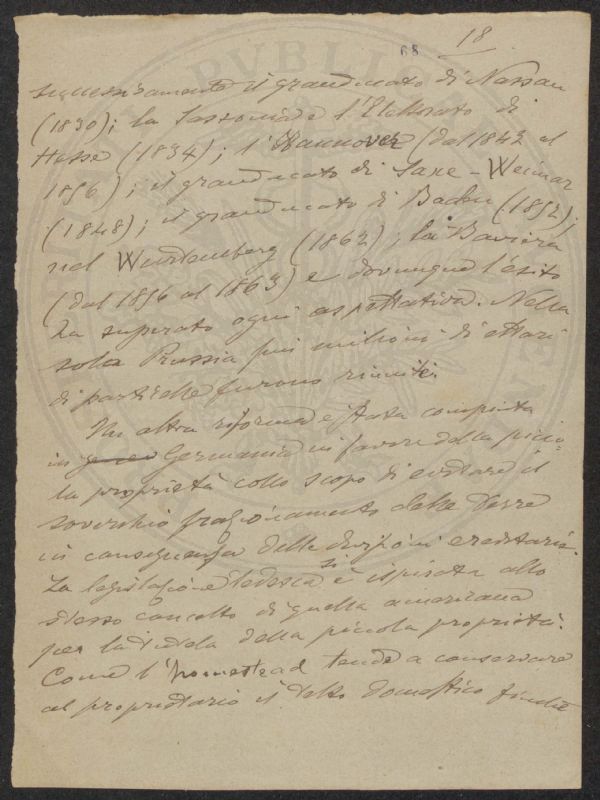 68 18
successivamente il granducato di Nassau
(1830); la Sassonia e l'Elettorato di
Hesse (1834); l'Hannover (dal 1842 al
1856); il granducato di Saxe-Weimar
(1848); il granducato di Baden (1852);
nel Wurtemberg (1862); la Baviera
(dal 1856 al 1863) e dovunque l'esito
ha superato ogni aspettativa. Nella
sola Prussia più milioni di ettari
di particelle furono riuniti.
Un altra riforma è stata compiuta
in Germania in favore della picco-
la proprietà collo scopo di evitare il
soverchio frazionamento delle terre
in conseguenza delle divisioni ereditarie.
La legislazione tedesca si è ispirata allo
stesso concetto di quella americana
per la tutela della piccola proprietà.
Come l'homestead tende a conservare
al proprietario il tetto domestico finchè